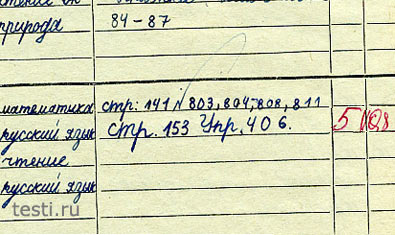 природа 84-87
математика стр: 141 № 803, 804, 808, 811
русский язык стр. 153 Упр. 406. 5
чтение
русский язык
testi.ru